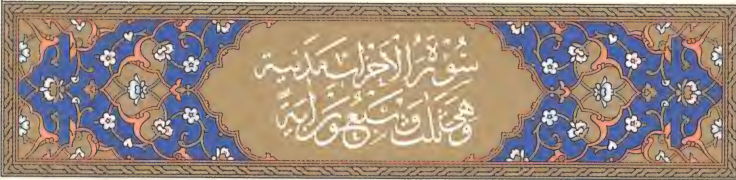 سُوْرَةُ الْأَحْزَابِ مَدَنِيَّة
وَهِيَ ثَلَاثٌ وَسَبْعُونَ آيَةً